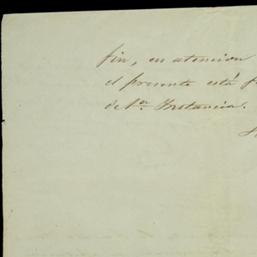 fin, en atencion
el presente está
de 1ª. Instancia.